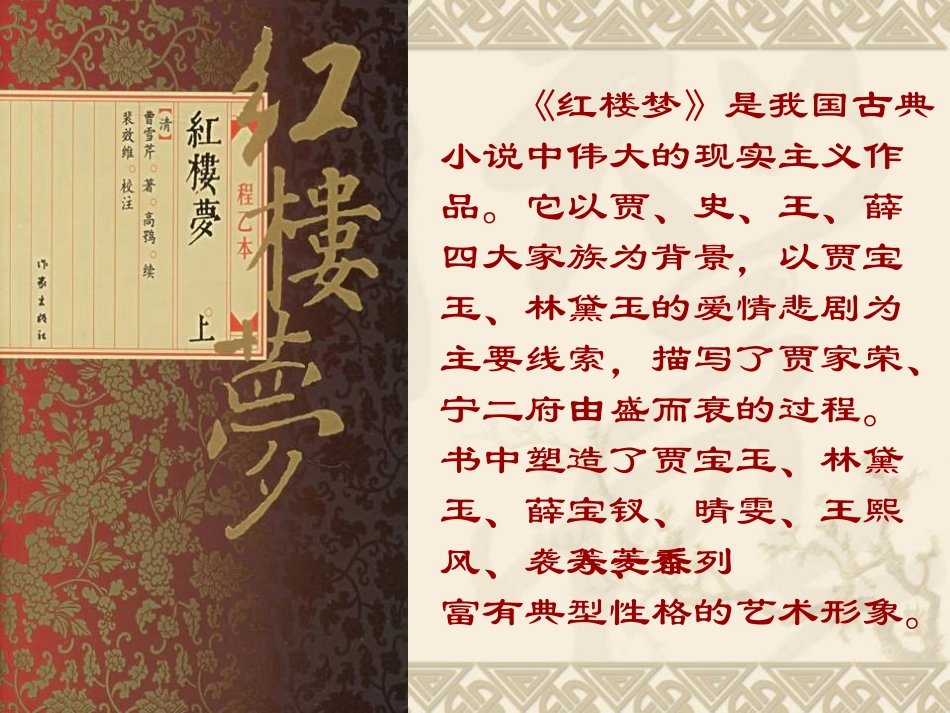 紅樓夢
程乙本
紅樓夢 上
【清】
曹雪芹。著。高鶚。续
裴效维。校注
作家出版社
《红楼梦》是我国古典
小说中伟大的现实主义作
品。它以贾、史、王、薛
四大家族为背景，以贾宝
玉、林黛玉的爱情悲剧为
主要线索，描写了贾家荣、
宁二府由盛而衰的过程。
书中塑造了贾宝玉、林黛
玉、薛宝钗、晴雯、王熙
风、袭
列
富有典型性格的艺术形象。